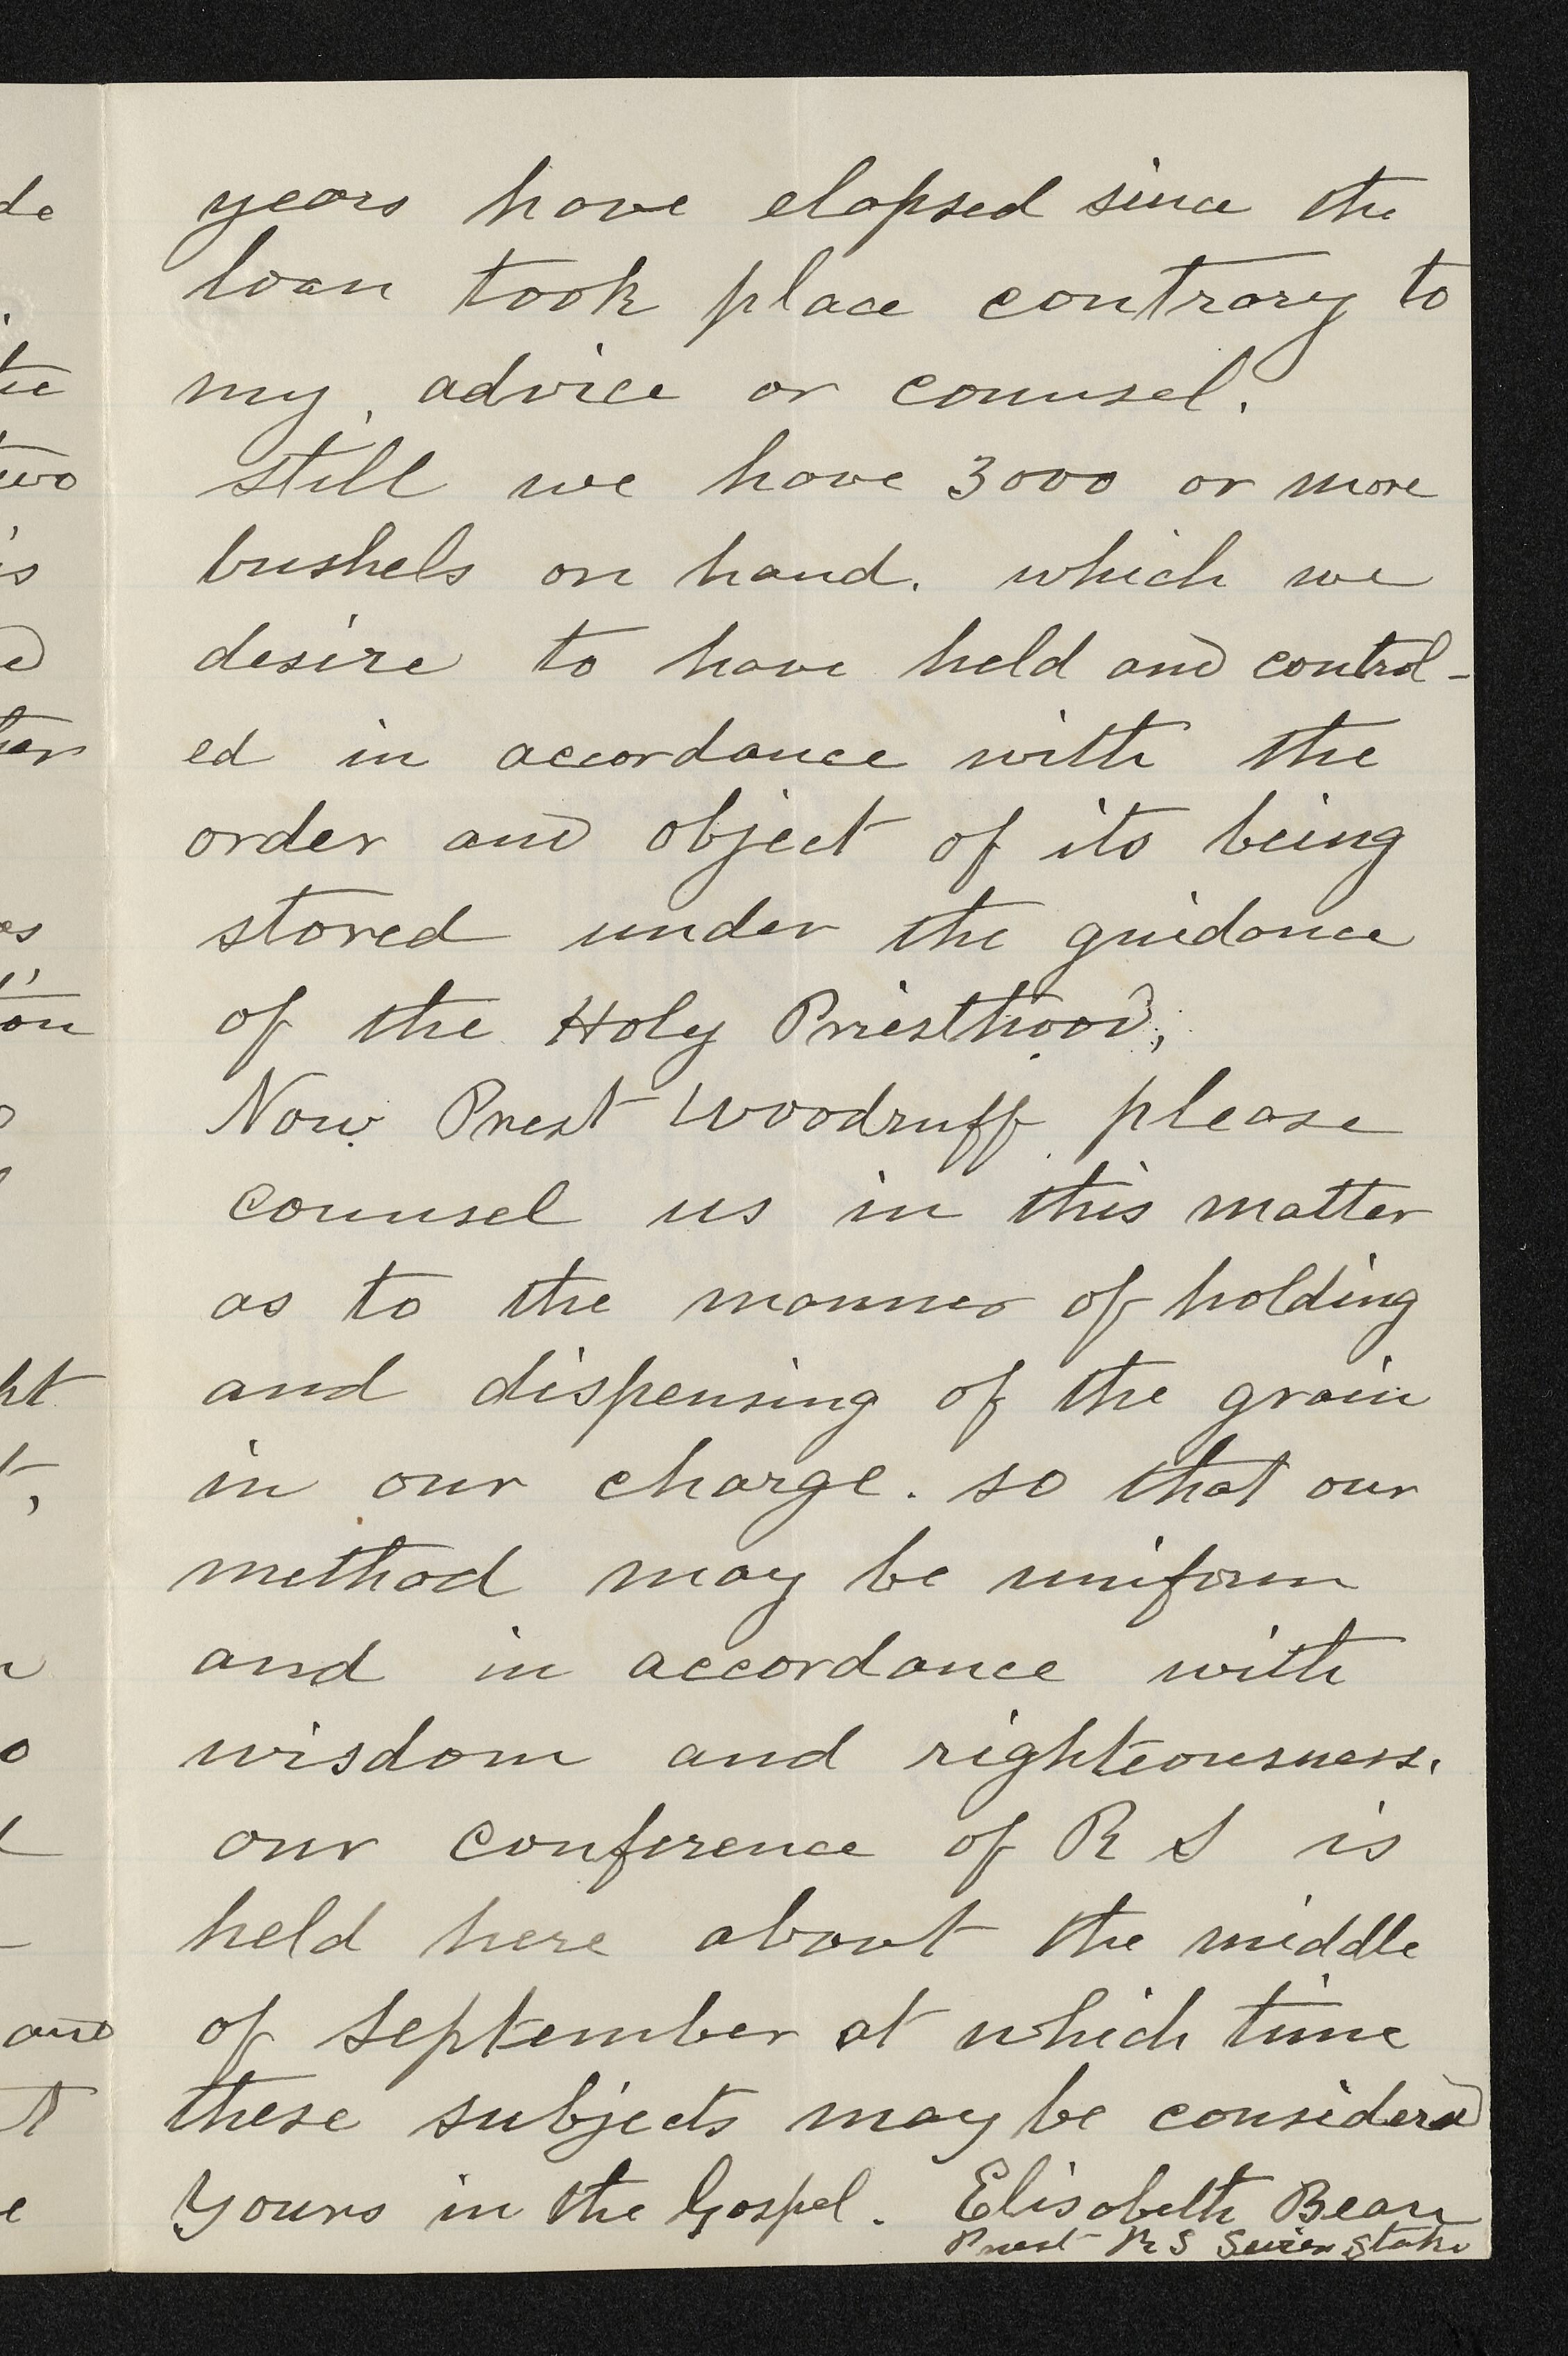 years have elapsed since the
loan took place contrary to
my advice or counsel.
still we have 3000 or more
bushels on hand. which we
desire to have held and control-
ed in accordance with the
order and object of its being
stored under the guidance
of the Holy Priesthood;
Now Prest Woodruff please
counsel us in this matter
as to the manner of holding
and dispensing of the grain
in our charge. so that our
method may be uniform
and in accordance with
wisdom and righteousness.
our conference of R S is
held here about the middle
of September at which time
these subjects may be considered
Yours in the Gospel. Elisabeth Bean
Prest R S Sevier Stake